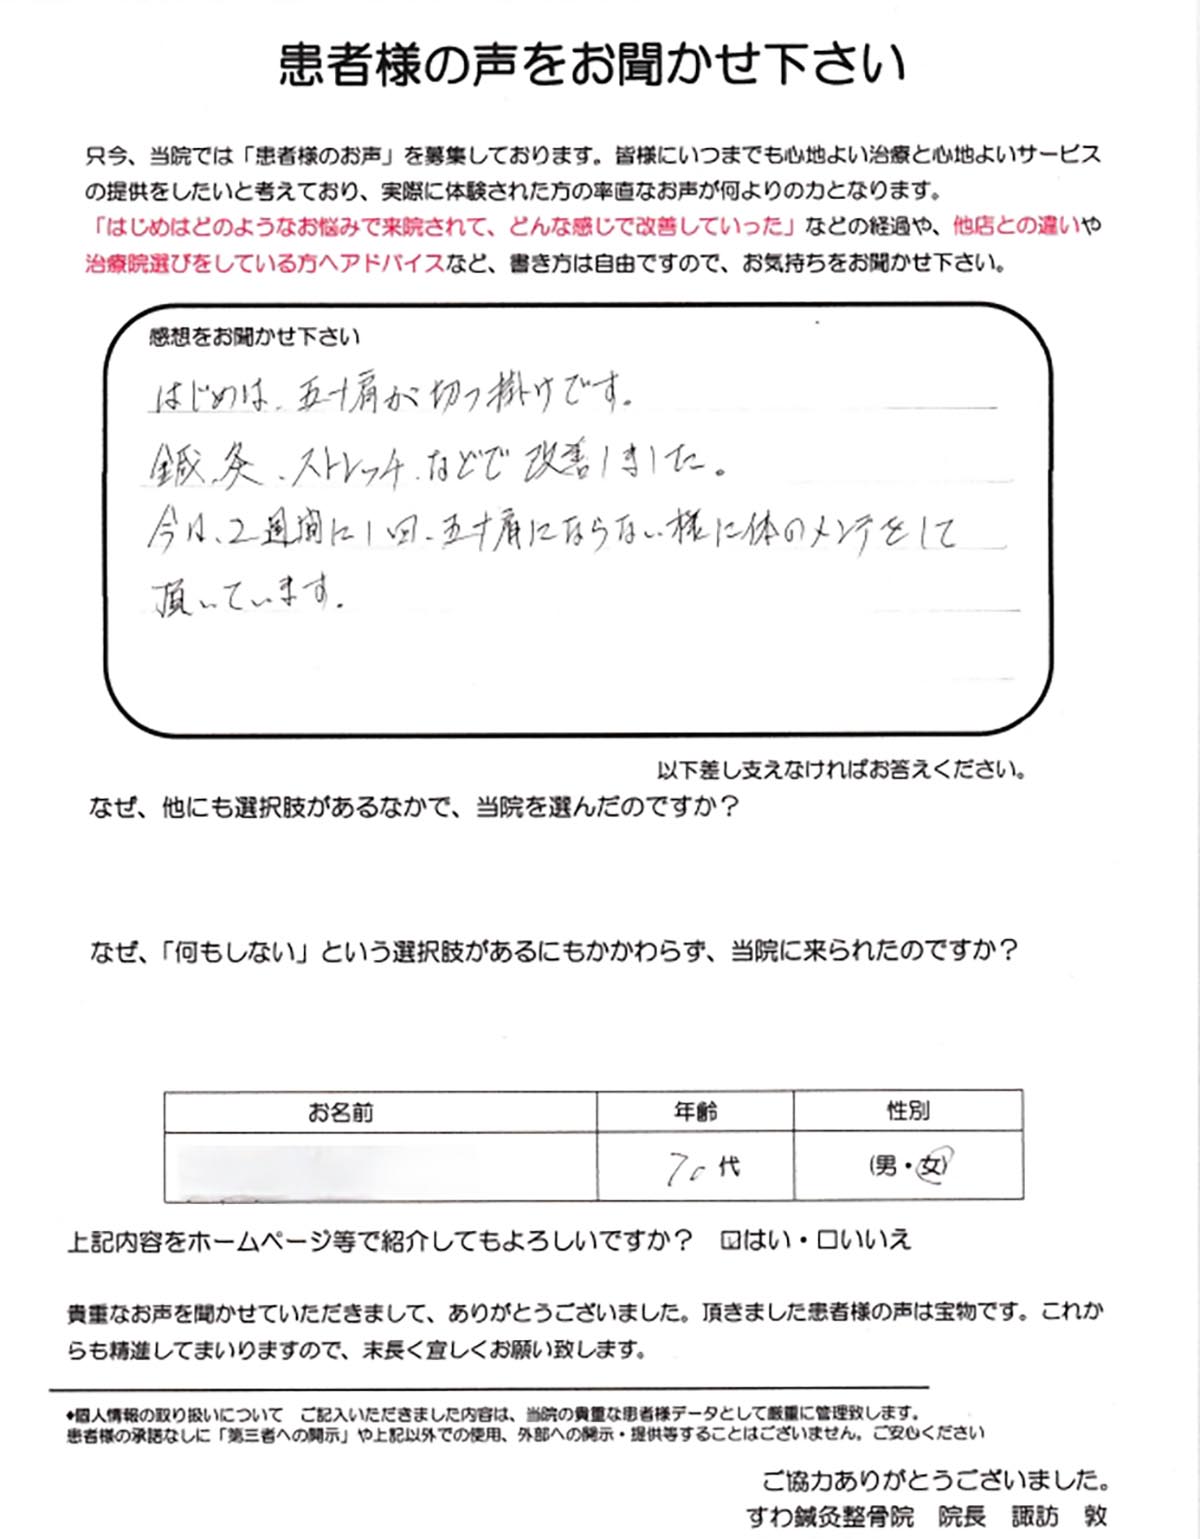 患者様の声をお聞かせ下さい
只今、当院では「患者様のお声」を募集しております。皆様にいつまでも心地よい治療と心地よいサービス
の提供をしたいと考えており、実際に体験された方の率直なお声が何よりの力となります。
「はじめはどのようなお悩みで来院されて、どんな感じで改善していった」などの経過や、他店との違いや
治療院選びをしている方へアドバイスなど、書き方は自由ですので、お気持ちをお聞かせ下さい。
感想をお聞かせ下さい
はじめは、五十肩が切っ掛けです。
鍼、灸、ストレッチ、などで改善しました。
今は、2週間に1回、五十肩にならない様に体のメンテをして
頂いています。
以下差し支えなければお答えください。
なぜ、他にも選択肢があるなかで、当院を選んだのですか？
なぜ、「何もしない」という選択肢があるにもかかわらず、当院に来られたのですか？
お名前 年齢 性別
70代 (男・女)
上記内容をホームページ等で紹介してもよろしいですか？ ☑はい・☐いいえ
貴重なお声を聞かせていただきまして、ありがとうございました。頂きました患者様の声は宝物です。これか
らも精進してまいりますので、末長く宜しくお願い致します。
♦個人情報の取り扱いについて ご記入いただきました内容は、当院の貴重な患者様データとして厳重に管理致します。
患者様の承諾なしに「第三者への開示」や上記以外での使用、外部への開示・提供等することはございません。ご安心ください
ご協力ありがとうございました。
すわ鍼灸整骨院 院長 諏訪 敦